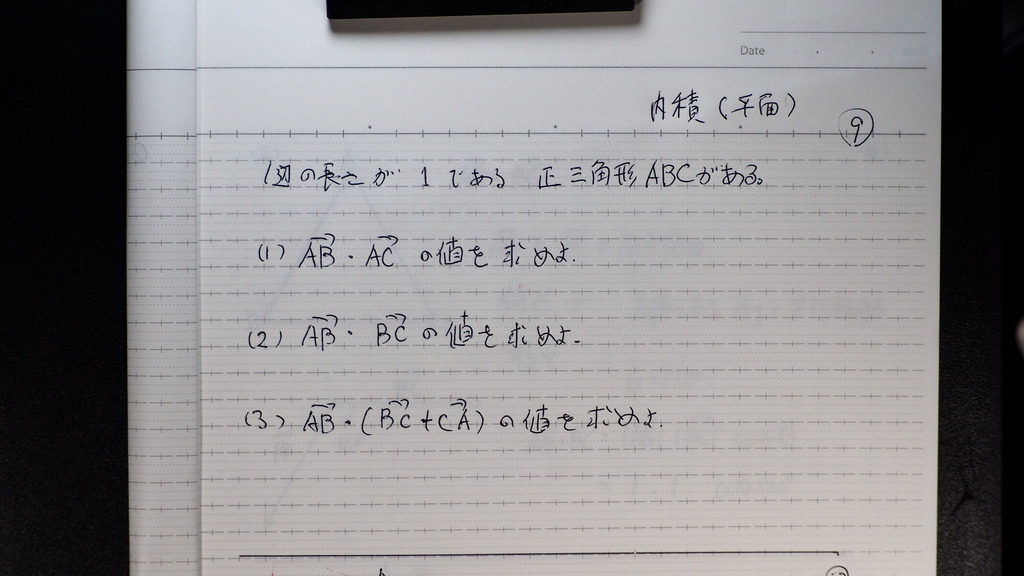 Date
内積(平面)
9
1辺の長さが 1 である 正三角形ABCがある。
(1) AB・AC の値を求めよ.
(2) AB・BC の値を求めよ.
(3) AB・(BC+CA) の値を求めよ.